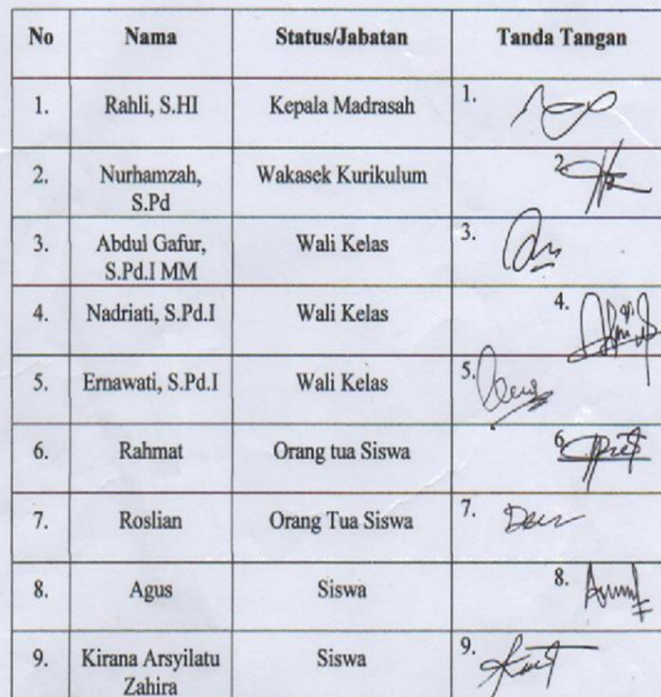 No Nama Status/Jabatan Tanda Tangan
1. Rahli, S.HI Kepala Madrasah 1.
2. Nurhamzah, Wakasek Kurikulum 2.
S.Pd
3. Abdul Gafur, Wali Kelas 3.
S.Pd.I MM
4. Nadriati, S.Pd.I Wali Kelas 4.
5. Ernawati, S.Pd.I Wali Kelas 5.
6. Rahmat Orang tua Siswa 6.
7. Roslian Orang Tua Siswa 7.
8. Agus Siswa 8.
9. Kirana Arsyilatu Siswa 9.
Zahira